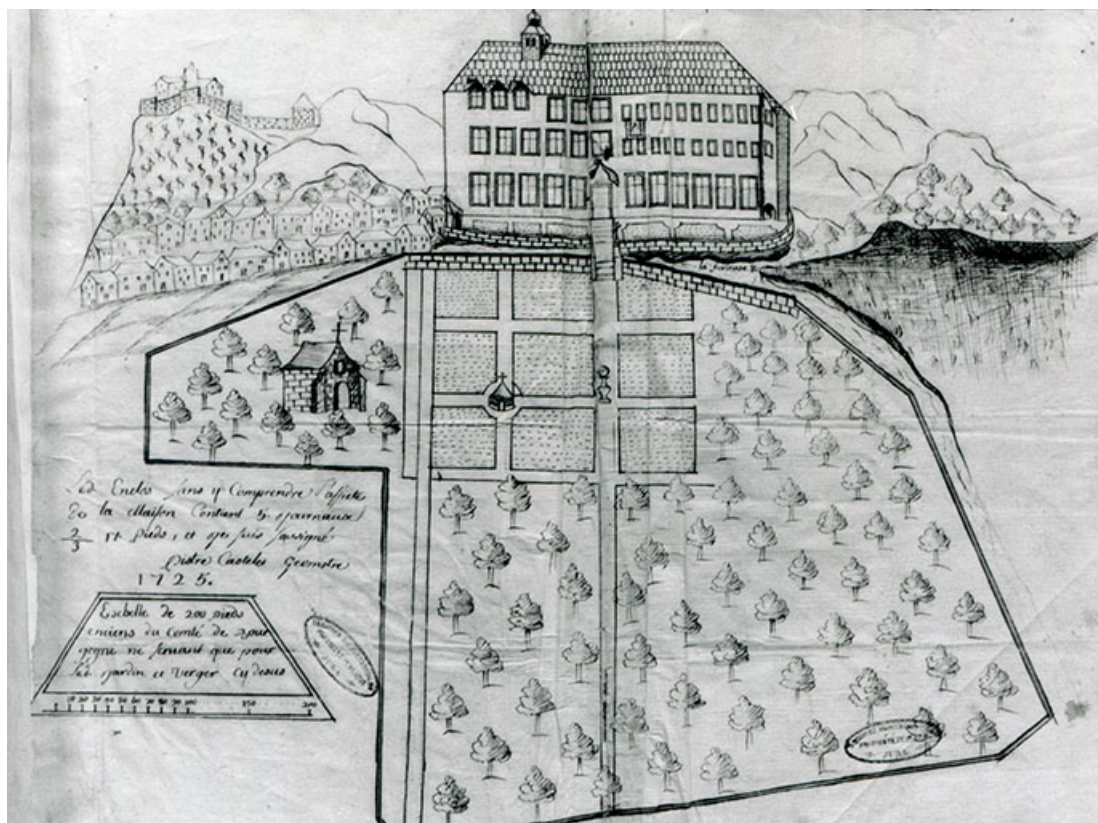 la furieuse R
Les Enclos sans y Comprendre l'assiete
de la Maison Contient 5. journaux
2/3 17 pieds, et je suis soussigné
pistre Casteles Geometre
1725.
Echelle de 200 pieds
enciens du Comté de Bour
gogne ne servant que pour
les jardin et Verger cy dessus
10 20 30 40 50 60 70 80 90 100 150 200